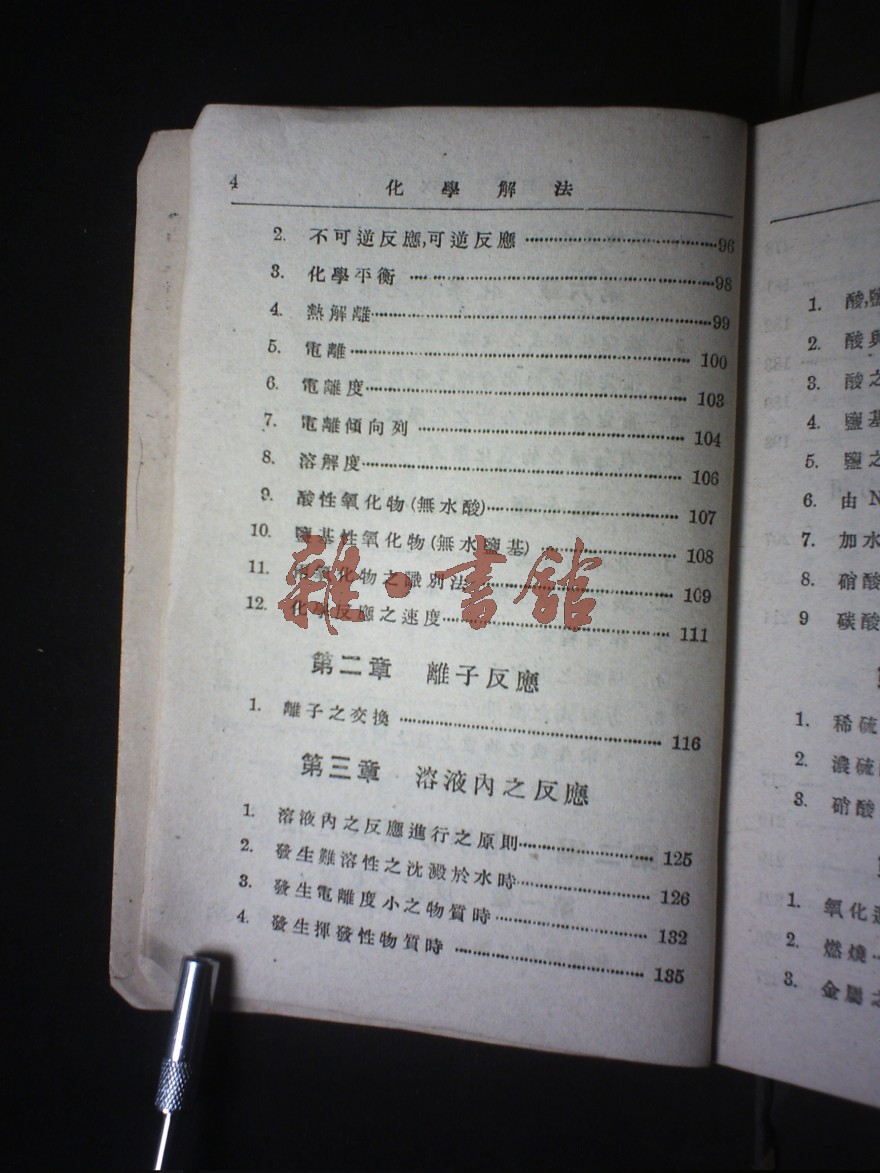 4 化學解法
2. 不可逆反應,可逆反應 ········ 96
3. 化學平衡 ········ 98
4. 熱解離 ········ 99
5. 電離 ········ 100
6. 電離度 ········ 103
7. 電離傾向列 ········ 104
8. 溶解度 ········ 106
9. 酸性氧化物(無水酸) ········ 107
10. 鹽基性氧化物(無水鹽基) ········ 108
11. 氧化物之識別法 ········ 109
12. 化學反應之速度 ········ 111
第二章 離子反應
1. 離子之交換 ········ 116
第三章 溶液內之反應
1. 溶液內之反應進行之原則 ········ 125
2. 發生難溶性之沈澱於水時 ········ 126
3. 發生電離度小之物質時 ········ 132
4. 發生揮發性物質時 ········ 135
雜·書館
1. 酸,鹽
2. 酸與
3. 酸之
4. 鹽基
5. 鹽之
6. 由 N
7. 加水
8. 硝酸
9 碳酸
1. 稀硫
2. 濃硫
3. 硝酸
1. 氧化
2. 燃燒
3. 金屬之